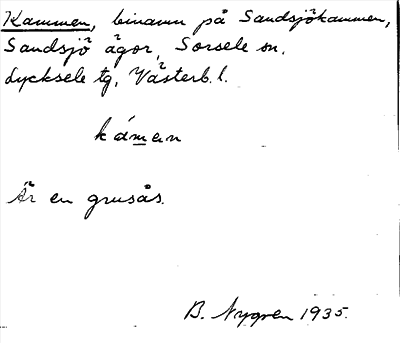 Kammen, binamn på Sandsjökammen,
Sandsjö ägor, Sorsele sn,
Lycksele tg, Västerb. l.
kámen
Är en grusås.
B. Nygren 1935.